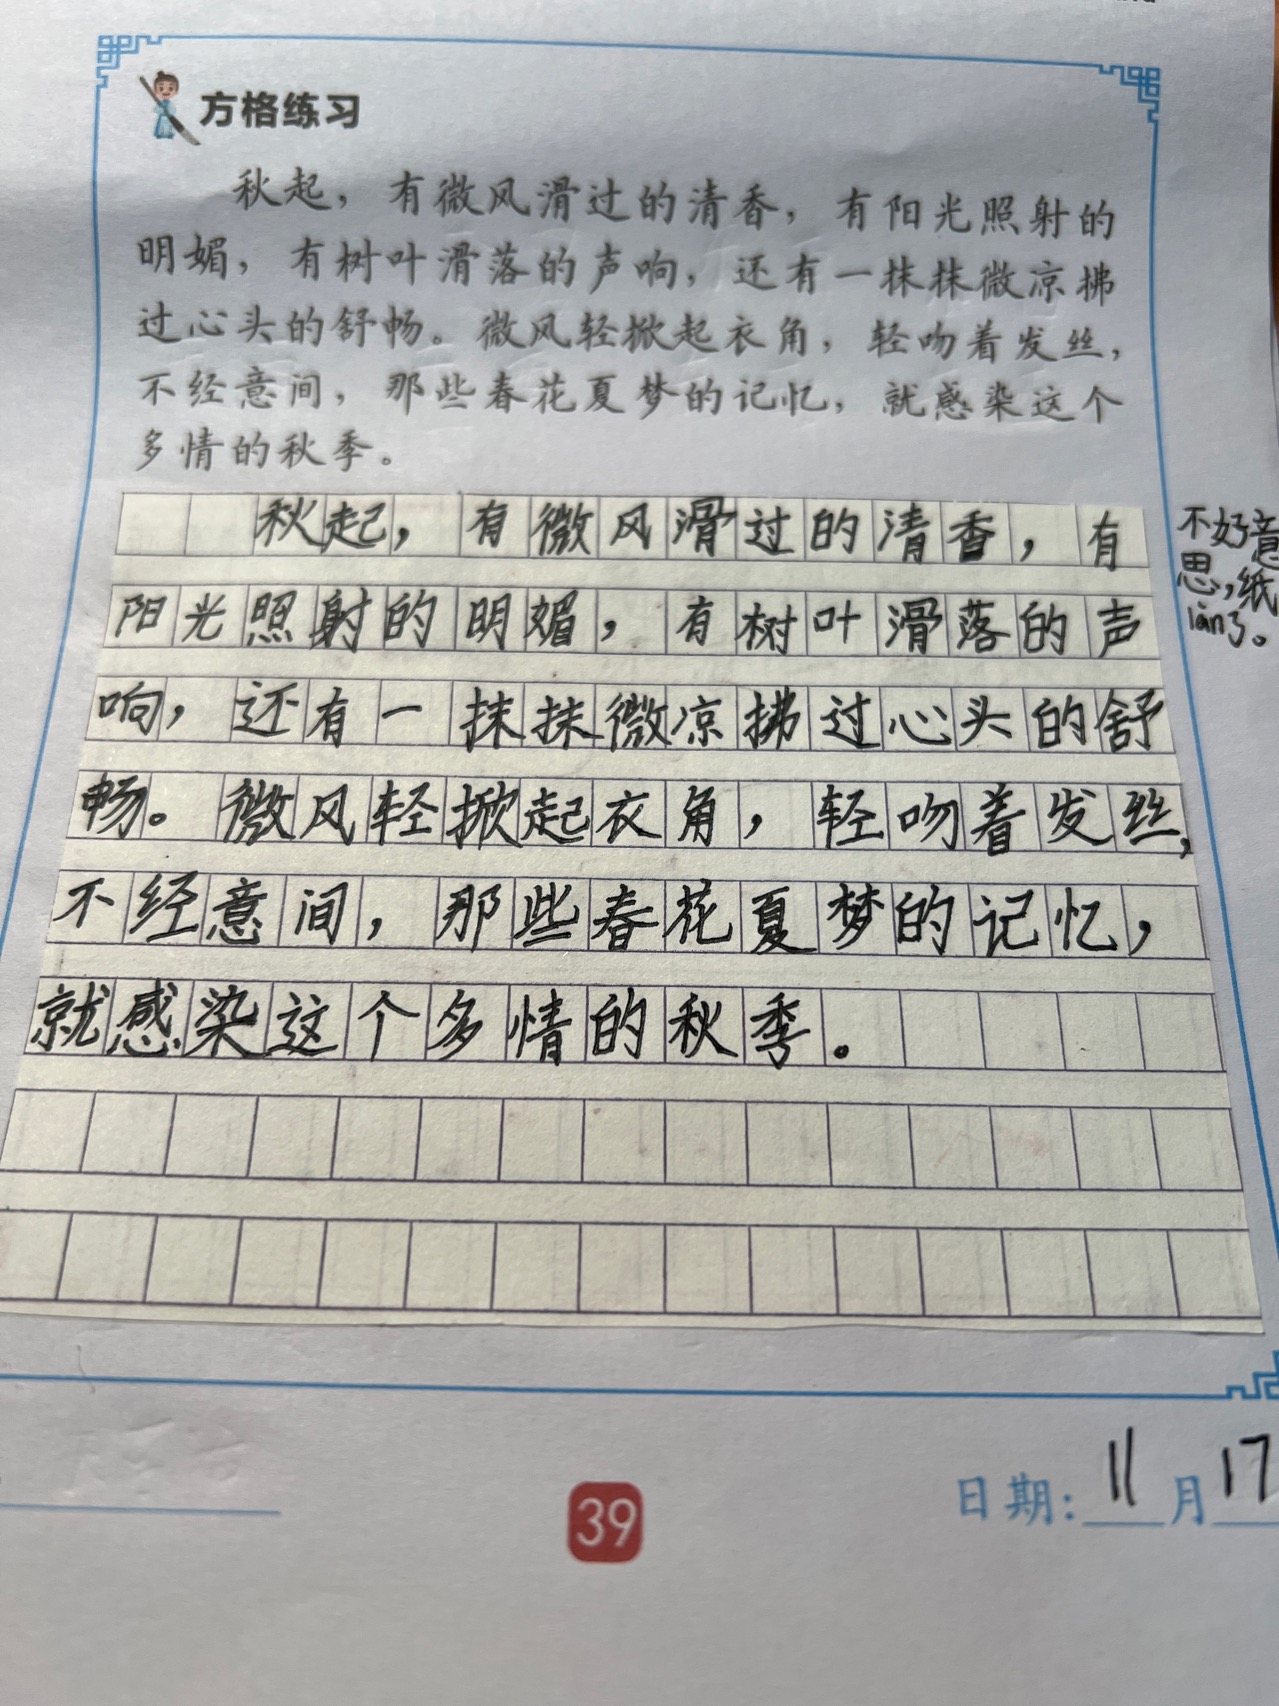 方格练习
秋起，有微风滑过的清香，有阳光照射的
明媚，有树叶滑落的声响，还有一抹抹微凉拂
过心头的舒畅。微风轻掀起衣角，轻吻着发丝，
不经意间，那些春花夏梦的记忆，就感染这个
多情的秋季。
秋起，有微风滑过的清香，有
阳光照射的明媚，有树叶滑落的声
响，还有一抹抹微凉拂过心头的舒
畅。微风轻掀起衣角，轻吻着发丝，
不经意间，那些春花夏梦的记忆，
就感染这个多情的秋季。
不好意
思，纸
làn了。
39
日期：11月17